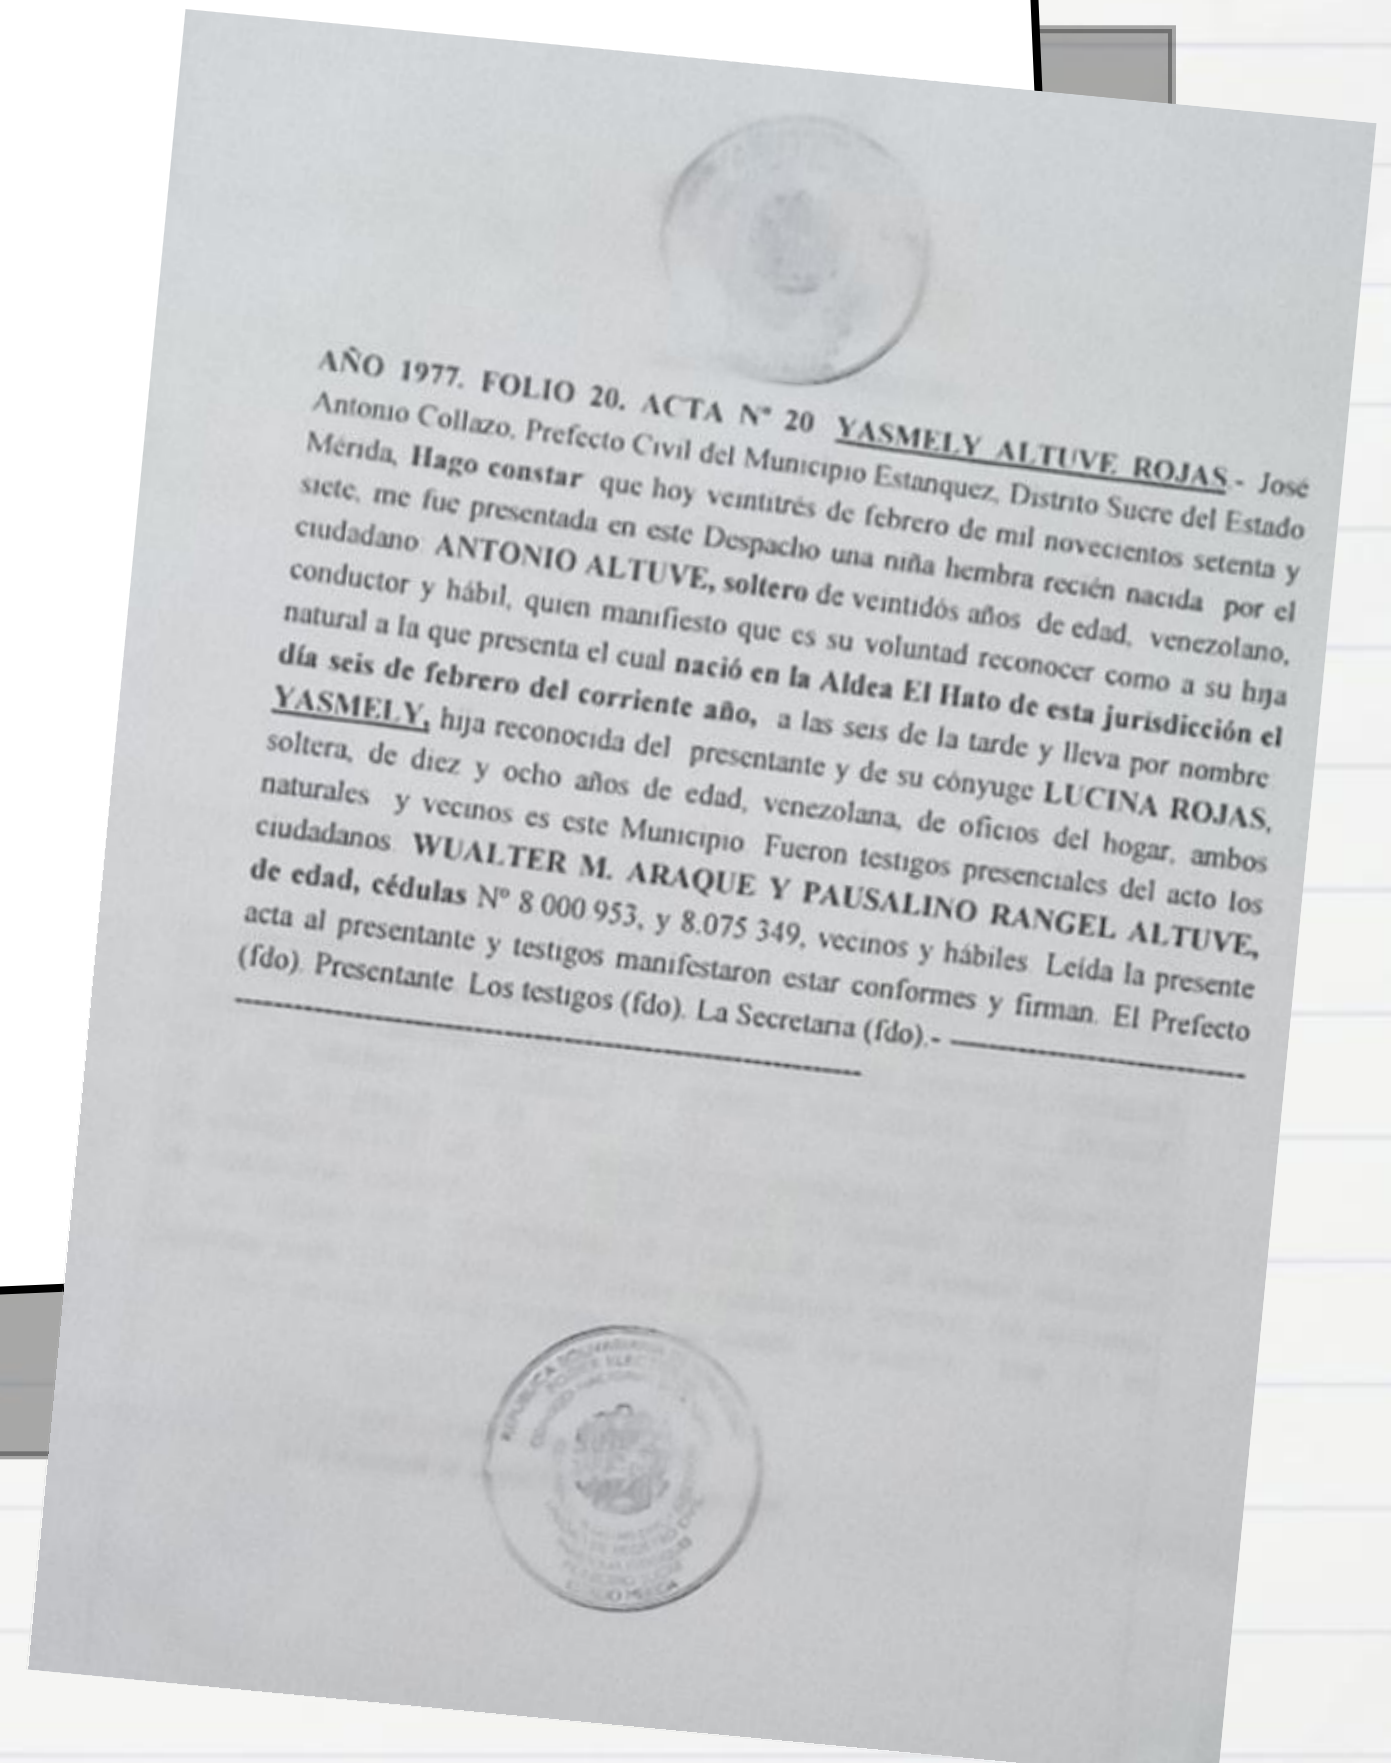 AÑO 1977. FOLIO 20. ACTA Nº 20 YASMELY ALTUVE ROJAS.- José
Antonio Collazo. Prefecto Civil del Municipio Estanquez, Distrito Sucre del Estado
Mérida, Hago constar que hoy veintitrés de febrero de mil novecientos setenta y
siete, me fue presentada en este Despacho una niña hembra recién nacida por el
ciudadano ANTONIO ALTUVE, soltero de veintidós años de edad, venezolano,
conductor y hábil, quien manifiesto que es su voluntad reconocer como a su hija
natural a la que presenta el cual nació en la Aldea El Hato de esta jurisdicción el
día seis de febrero del corriente año, a las seis de la tarde y lleva por nombre
YASMELY, hija reconocida del presentante y de su cónyuge LUCINA ROJAS,
soltera, de diez y ocho años de edad, venezolana, de oficios del hogar, ambos
naturales y vecinos es este Municipio Fueron testigos presenciales del acto los
ciudadanos WUALTER M. ARAQUE Y PAUSALINO RANGEL ALTUVE,
de edad, cédulas Nº 8 000 953, y 8.075 349, vecinos y hábiles Leída la presente
acta al presentante y testigos manifestaron estar conformes y firman. El Prefecto
(fdo). Presentante Los testigos (fdo). La Secretaria (fdo).-
REPUBLICA BOLIVARIANA DE